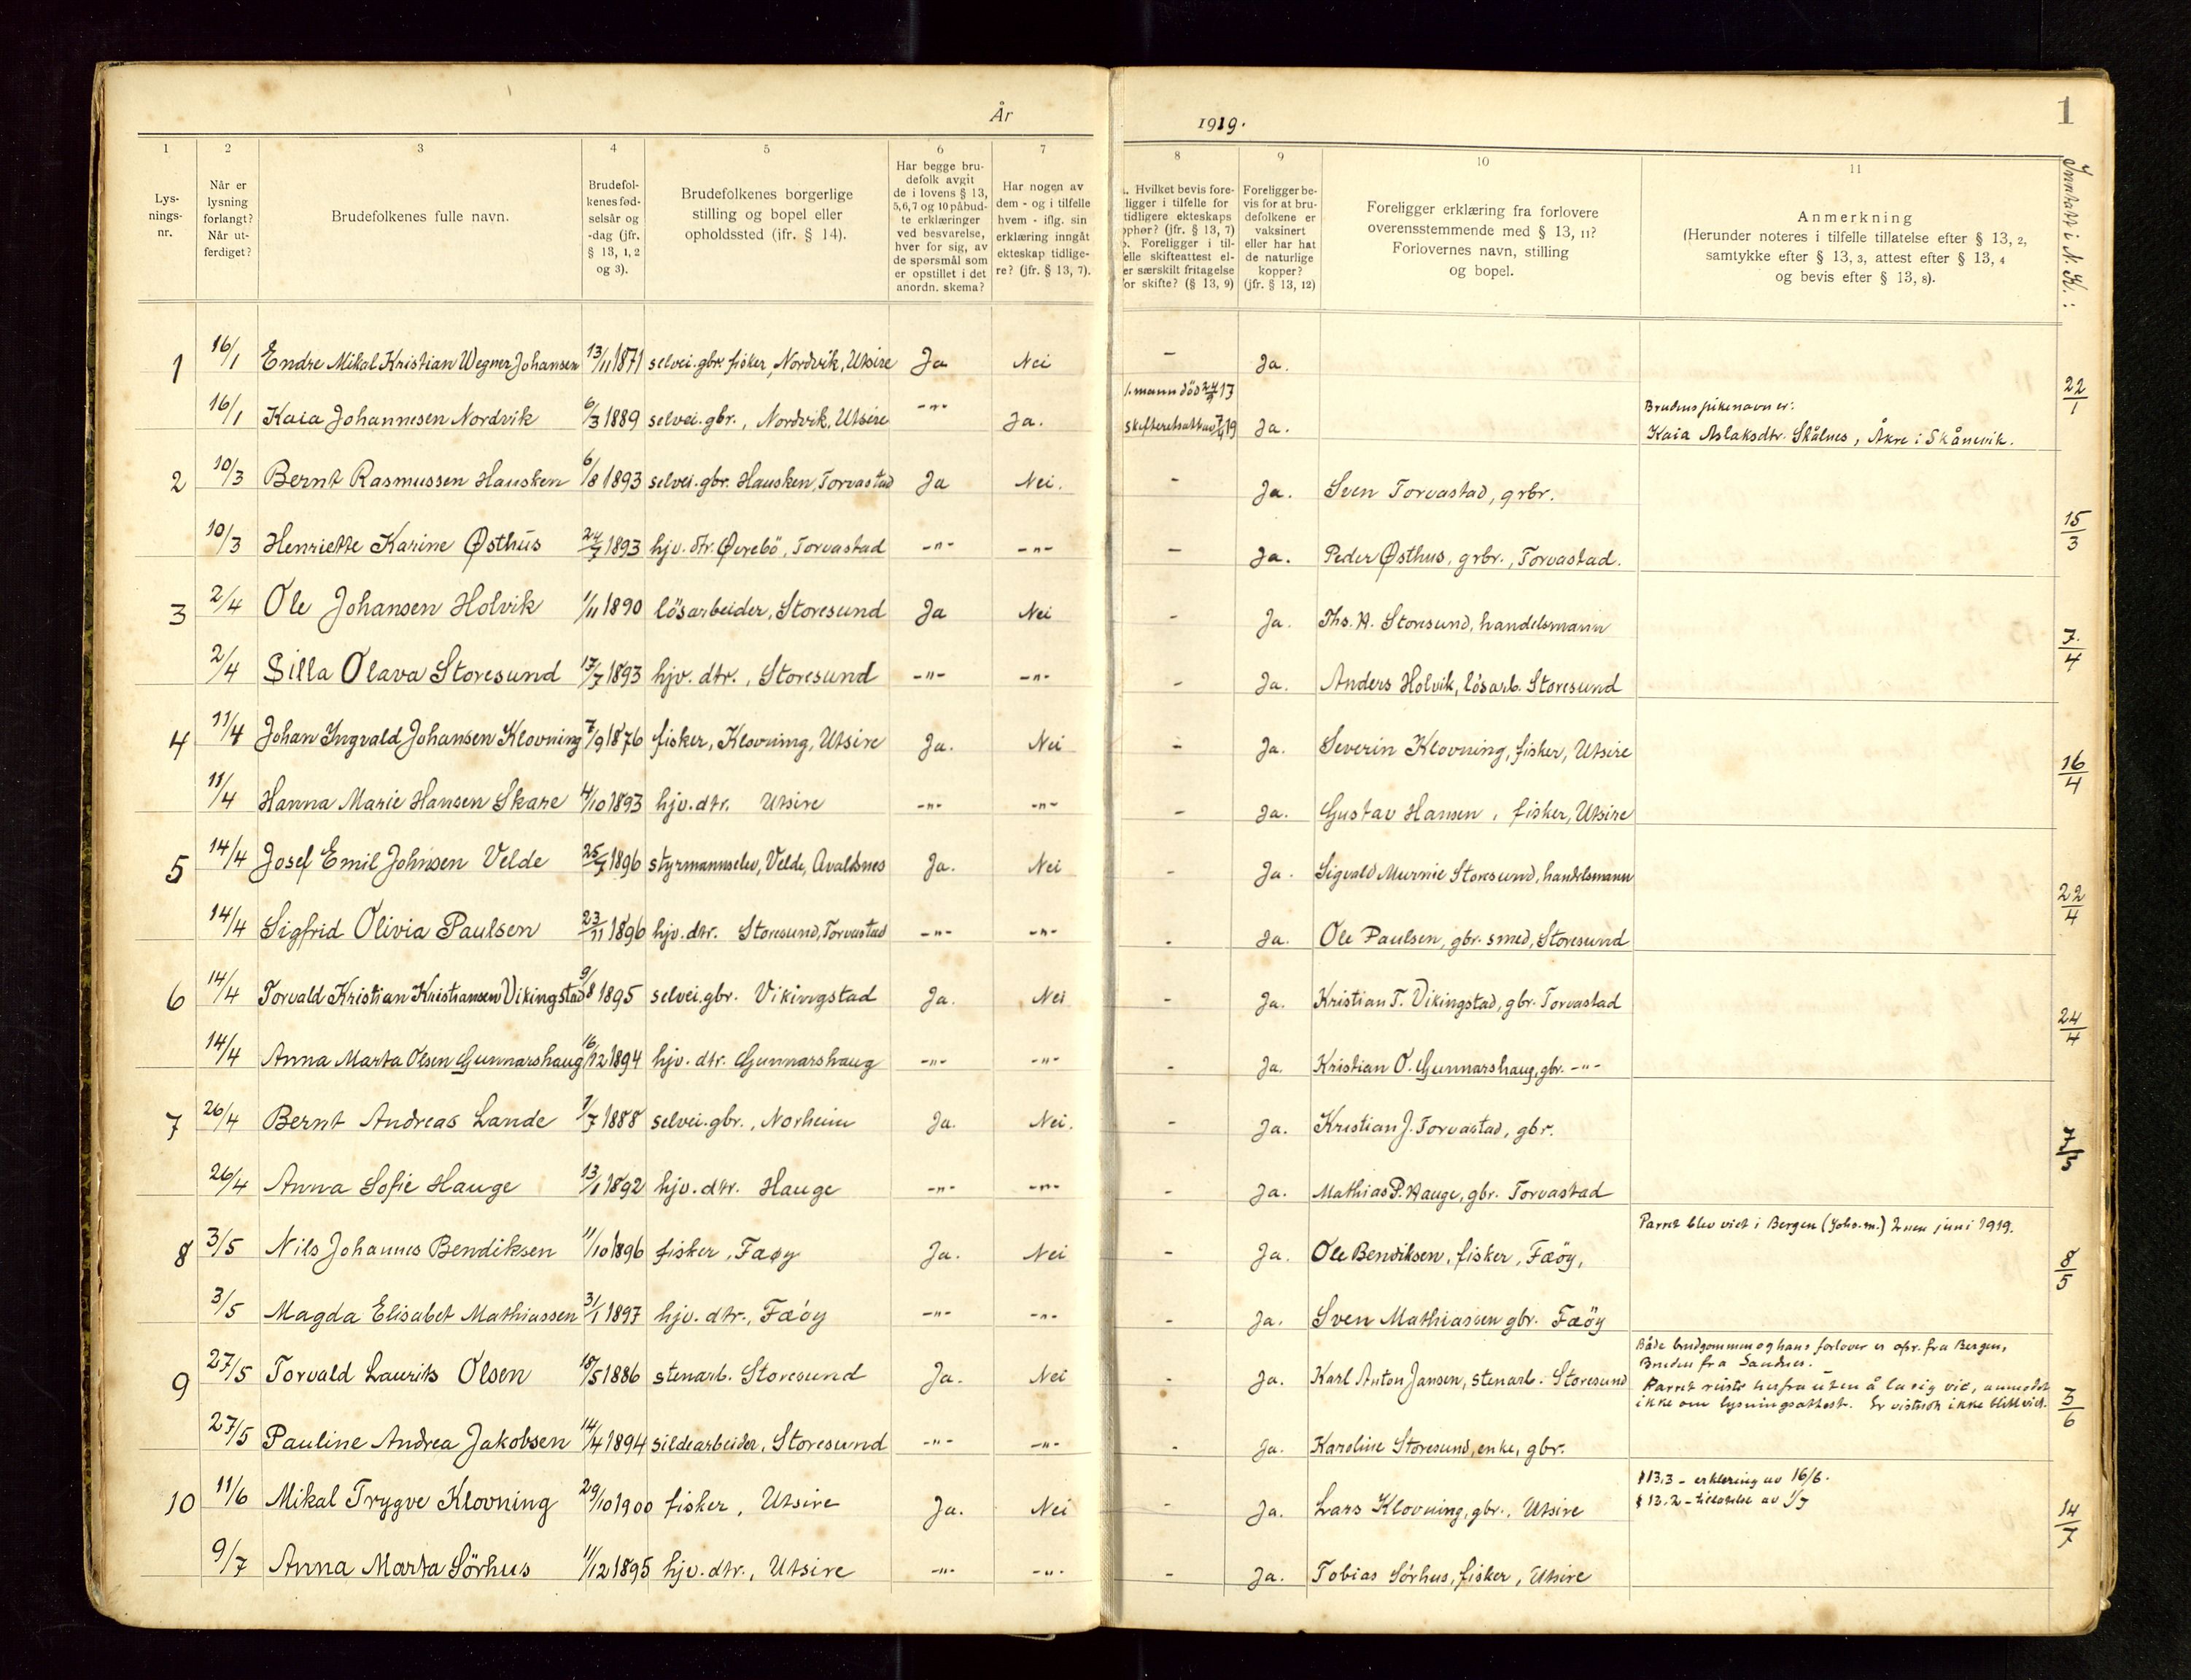 År 1919.
1
Inntatt i N. K.:
1 2 3 4 5 6 7 8 9 10 11
Lys-
nings-
nr.
Når er
lysning
forlangt?
Når ut-
ferdiget?
Brudefolkenes fulle navn.
Brudefol-
kenes fød-
selsår og
-dag (jfr.
§ 13, 1, 2
og 3).
Brudefolkenes borgerlige
stilling og bopel eller
opholdssted (jfr. § 14).
Har begge bru-
defolk avgit
de i lovens § 13,
5,6,7 og 10 påbud-
te erklæringer
ved besvarelse,
hver for sig, av
de spørsmål som
er opstillet i det
anordn. skema?
Har nogen av
dem - og i tilfelle
hvem - iflg. sin
erklæring inngåt
ekteskap tidlige-
re? (jfr. § 13, 7).
. Hvilket bevis fore-
ligger i tilfelle for
tidligere ekteskaps
ophør? (jfr. § 13, 7)
. Foreligger i til-
elle skifteattest el-
er særskilt fritagelse
or skifte? (§ 13, 9)
Foreligger be-
vis for at bru-
defolkene er
vaksinert
eller har hat
de naturlige
kopper?
(jfr. § 13, 12)
Foreligger erklæring fra forlovere
overensstemmende med § 13, 11?
Forlovernes navn, stilling
og bopel.
Anmerkning
(Herunder noteres i tilfelle tillatelse efter § 13, 2,
samtykke efter § 13, 3, attest efter § 13, 4
og bevis efter § 13, 8).
1 16/1 Endre Mikal Kristian Wegner Johansen 13/11 1871 selvei. gbr. fisker, Nordvik, Utsire Ja Nei - Ja.
16/1 Kaia Johannesen Nordvik 6/3 1889 selvei. gbr., Nordvik, Utsire -"- Ja. 1. mann død 24/9 13 skifteretsatt av 7/4 19 Ja. Brudens pikenavn er: 22/1
Kaia Aslaksdtr. Skålnes, Åkre i Skånevik.
2 10/3 Bernt Rasmussen Hausken 6/8 1893 selvei. gbr. Hausken, Torvastad Ja Nei. - Ja. Sven Torvastad, grbr.
10/3 Henriette Karine Østhus 24/7 1893 hjv. dtr. Øvrebö, Torvastad -"- -"- - Ja. Peder Østhus, grbr., Torvastad. 15/3
3 2/4 Ole Johansen Holvik 1/11 1890 lösarbeider, Storesund Ja Nei - Ja. Ths. A. Storesund, handelsmann
2/4 Silla Olava Storesund 17/7 1893 hjv. dtr., Storesund -"- -"- - Ja. Anders Holvik, lösarb. Storesund 7/4
4 11/4 Johan Ingvald Johansen Klovning 7/9 1876 fisker, Klovning, Utsire Ja. Nei - Ja. Severin Klovning, fisker, Utsire
11/4 Hanna Marie Hansen Skare 4/10 1893 hjv. dtr. Utsire -"- -"- - Ja. Gustav Hansen, fisker, Utsire 16/4
5 14/4 Josef Emil Johnsen Velde 25/7 1896 styrmannselev, Velde, Avaldsnes Ja. Nei - Ja. Sigvald Murnie Storesund, handelsmann
14/4 Sigfrid Olivia Paulsen 23/11 1896 hjv. dtr. Storesund, Torvastad -"- -"- - Ja. Ole Paulsen, gbr. smed, Storesund 22/4
6 14/4 Torvald Kristian Kristiansen Vikingstad 9/8 1895 selvei. gbr. Vikingstad Ja. Nei - Ja. Kristian T. Vikingstad, gbr. Torvastad
14/4 Anna Marta Olsen Gunnarshaug 16/12 1894 hjv. dtr. Gunnarshaug -"- -"- - Ja. Kristian O. Gunnarshaug, gbr. -"- 24/4
7 26/4 Bernt Andreas Lande 1/7 1888 selvei. gbr., Norheim Ja. Nei. - Ja. Kristian J. Torvastad, gbr.
26/4 Anna Sofie Hauge 13/1 1892 hjv. dtr. Hauge -"- -"- - Ja. Mathias P. Hauge, gbr. Torvastad 7/5
8 3/5 Nils Johannes Bendiksen 11/10 1896 fisker, Faøy Ja. Nei - Ja. Ole Bendiksen, fisker, Fæöy, Parret blev viet i Bergen (Johs. m.) 2nen juni 1919.
3/5 Magda Elisabet Mathiassen 31/1 1897 hjv. dtr., Fæöy -"- -"- - Ja. Sven Mathiassen gbr. Fæöy 8/5
9 27/5 Torvald Laurits Olsen 18/5 1886 stenarb. Storesund Ja. Nei - Ja. Karl Anton Jansen, stenarb. Storesund Både brudgommen og hans forlover er opr. fra Bergen,
Bruden fra Sandnes.
Parret reiste herfra uten å la sig vie, anmodet
ikke om lysningsattest. Er vistnok ikke blitt viet.
27/5 Pauline Andrea Jakobsen 14/4 1894 sildearbeider, Storesund -"- -"- - Ja. Karoline Storesund, enke, gbr. 3/6
10 11/6 Mikal Trygve Klovning 29/10 1900 fisker, Utsire Ja. Nei - Ja. Lars Klovning, gbr., Utsire § 13.3 - erklæring av 16/6.
§ 13.2 - tillatelse av 1/7
9/7 Anna Marta Sörhus 11/12 1895 hjv. dtr., Utsire -"- -"- - Ja. Tobias Sørhus, fisker, Utsire 14/7